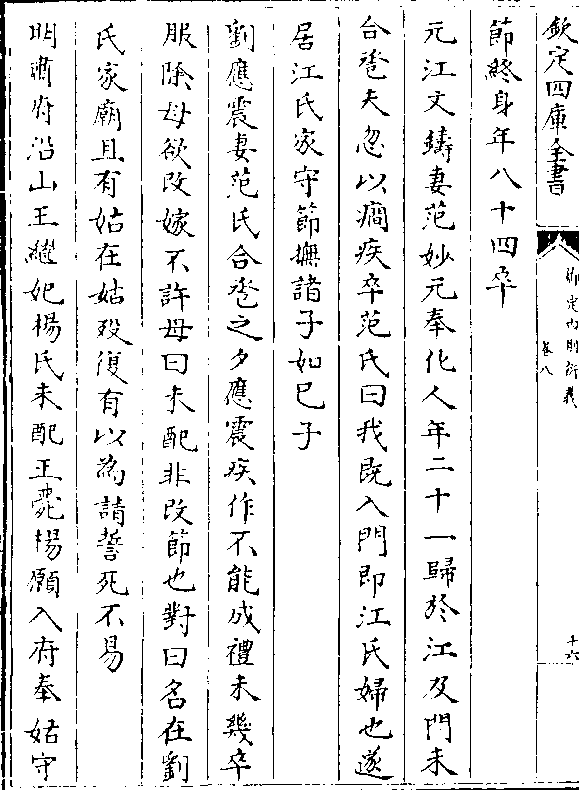 欽定四庫全書
御定內則衍義
卷八
十六
節終身年八十四卒
元江文鑄妻范妙元奉化人年二十一歸於江及門未
合卺夫忽以癇疾卒范氏曰我既入門即江氏婦也遂
居江氏家守節撫諸子如已子
劉應震妻范氏合卺之夕應震疾作不能成禮未幾卒
服除母欲改嫁不許母曰未配非改節也對曰名在劉
氏家廟且有姑在姑殁復有以為請誓死不易
明肅府沿山王繼妃楊氏未配王薨楊願入府奉姑守